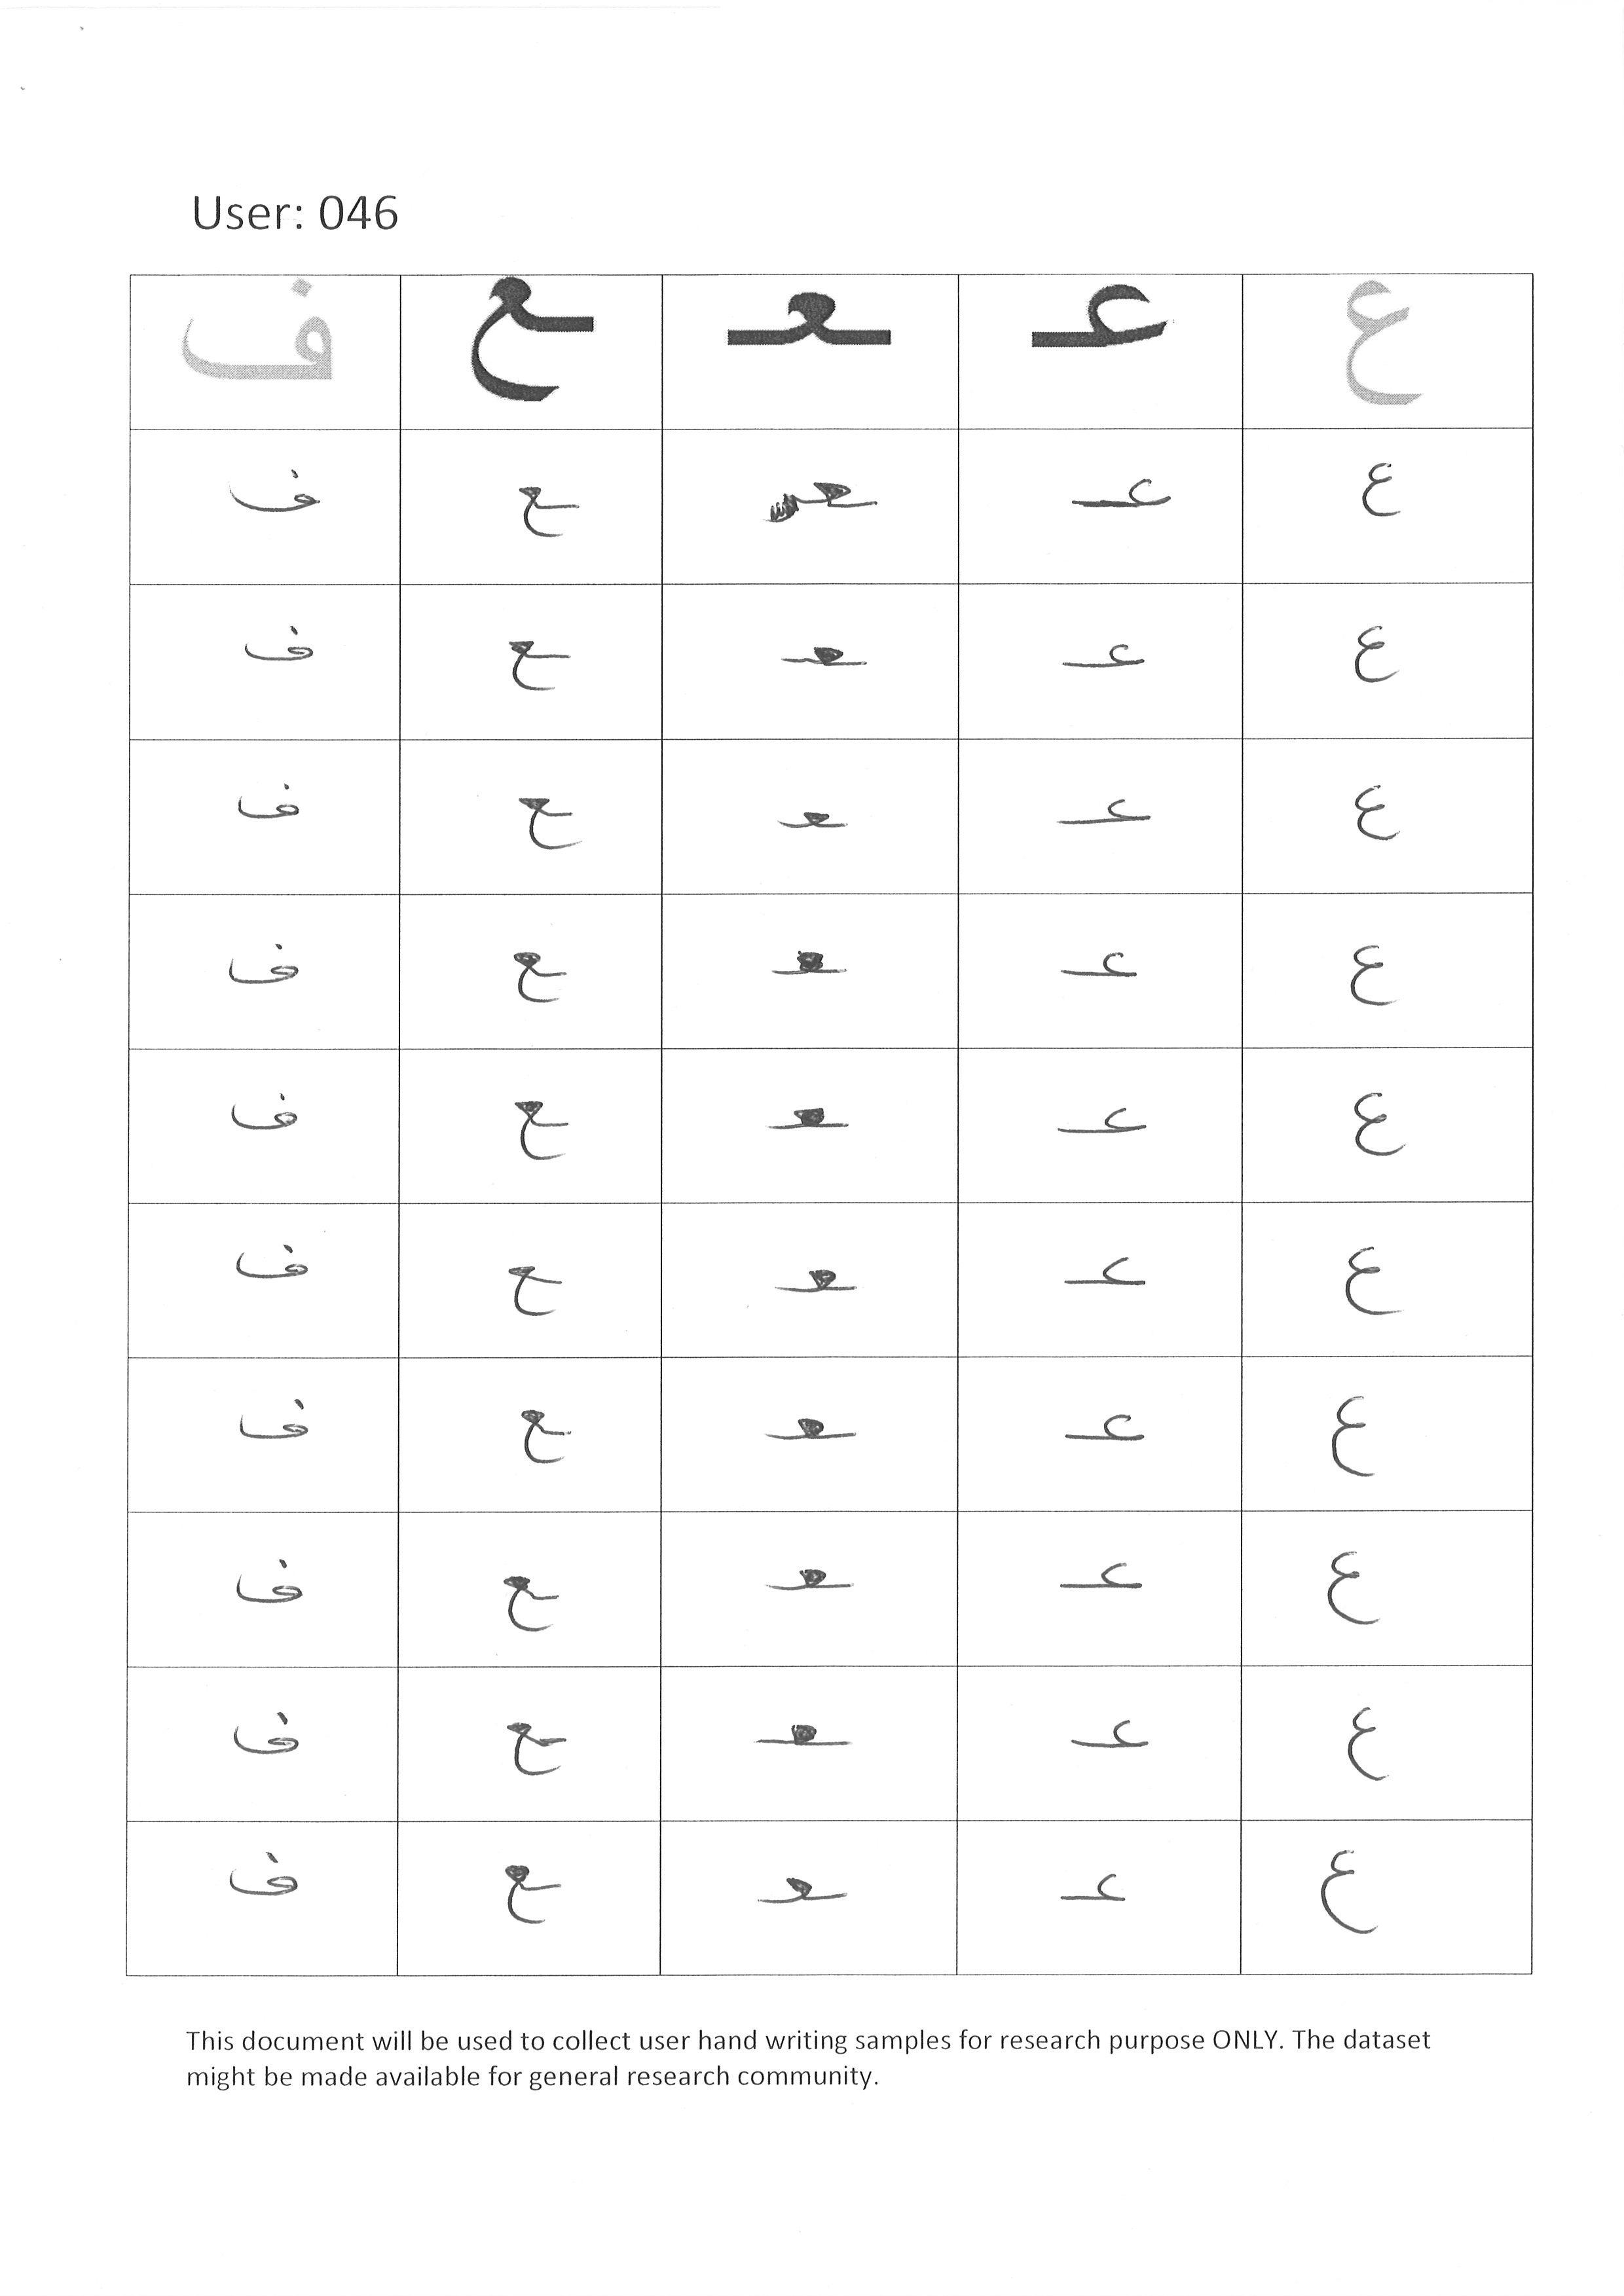 User: 046
ع عـ ـعـ ـع ف
ع عـ ـعـ ـع ف
ع عـ ـعـ ـع ف
ع عـ ـعـ ـع ف
ع عـ ـعـ ـع ف
ع عـ ـعـ ـع ف
ع عـ ـعـ ـع ف
ع عـ ـعـ ـع ف
ع عـ ـعـ ـع ف
ع عـ ـعـ ـع ف
ع عـ ـعـ ـع ف
This document will be used to collect user hand writing samples for research purpose ONLY. The dataset
might be made available for general research community.